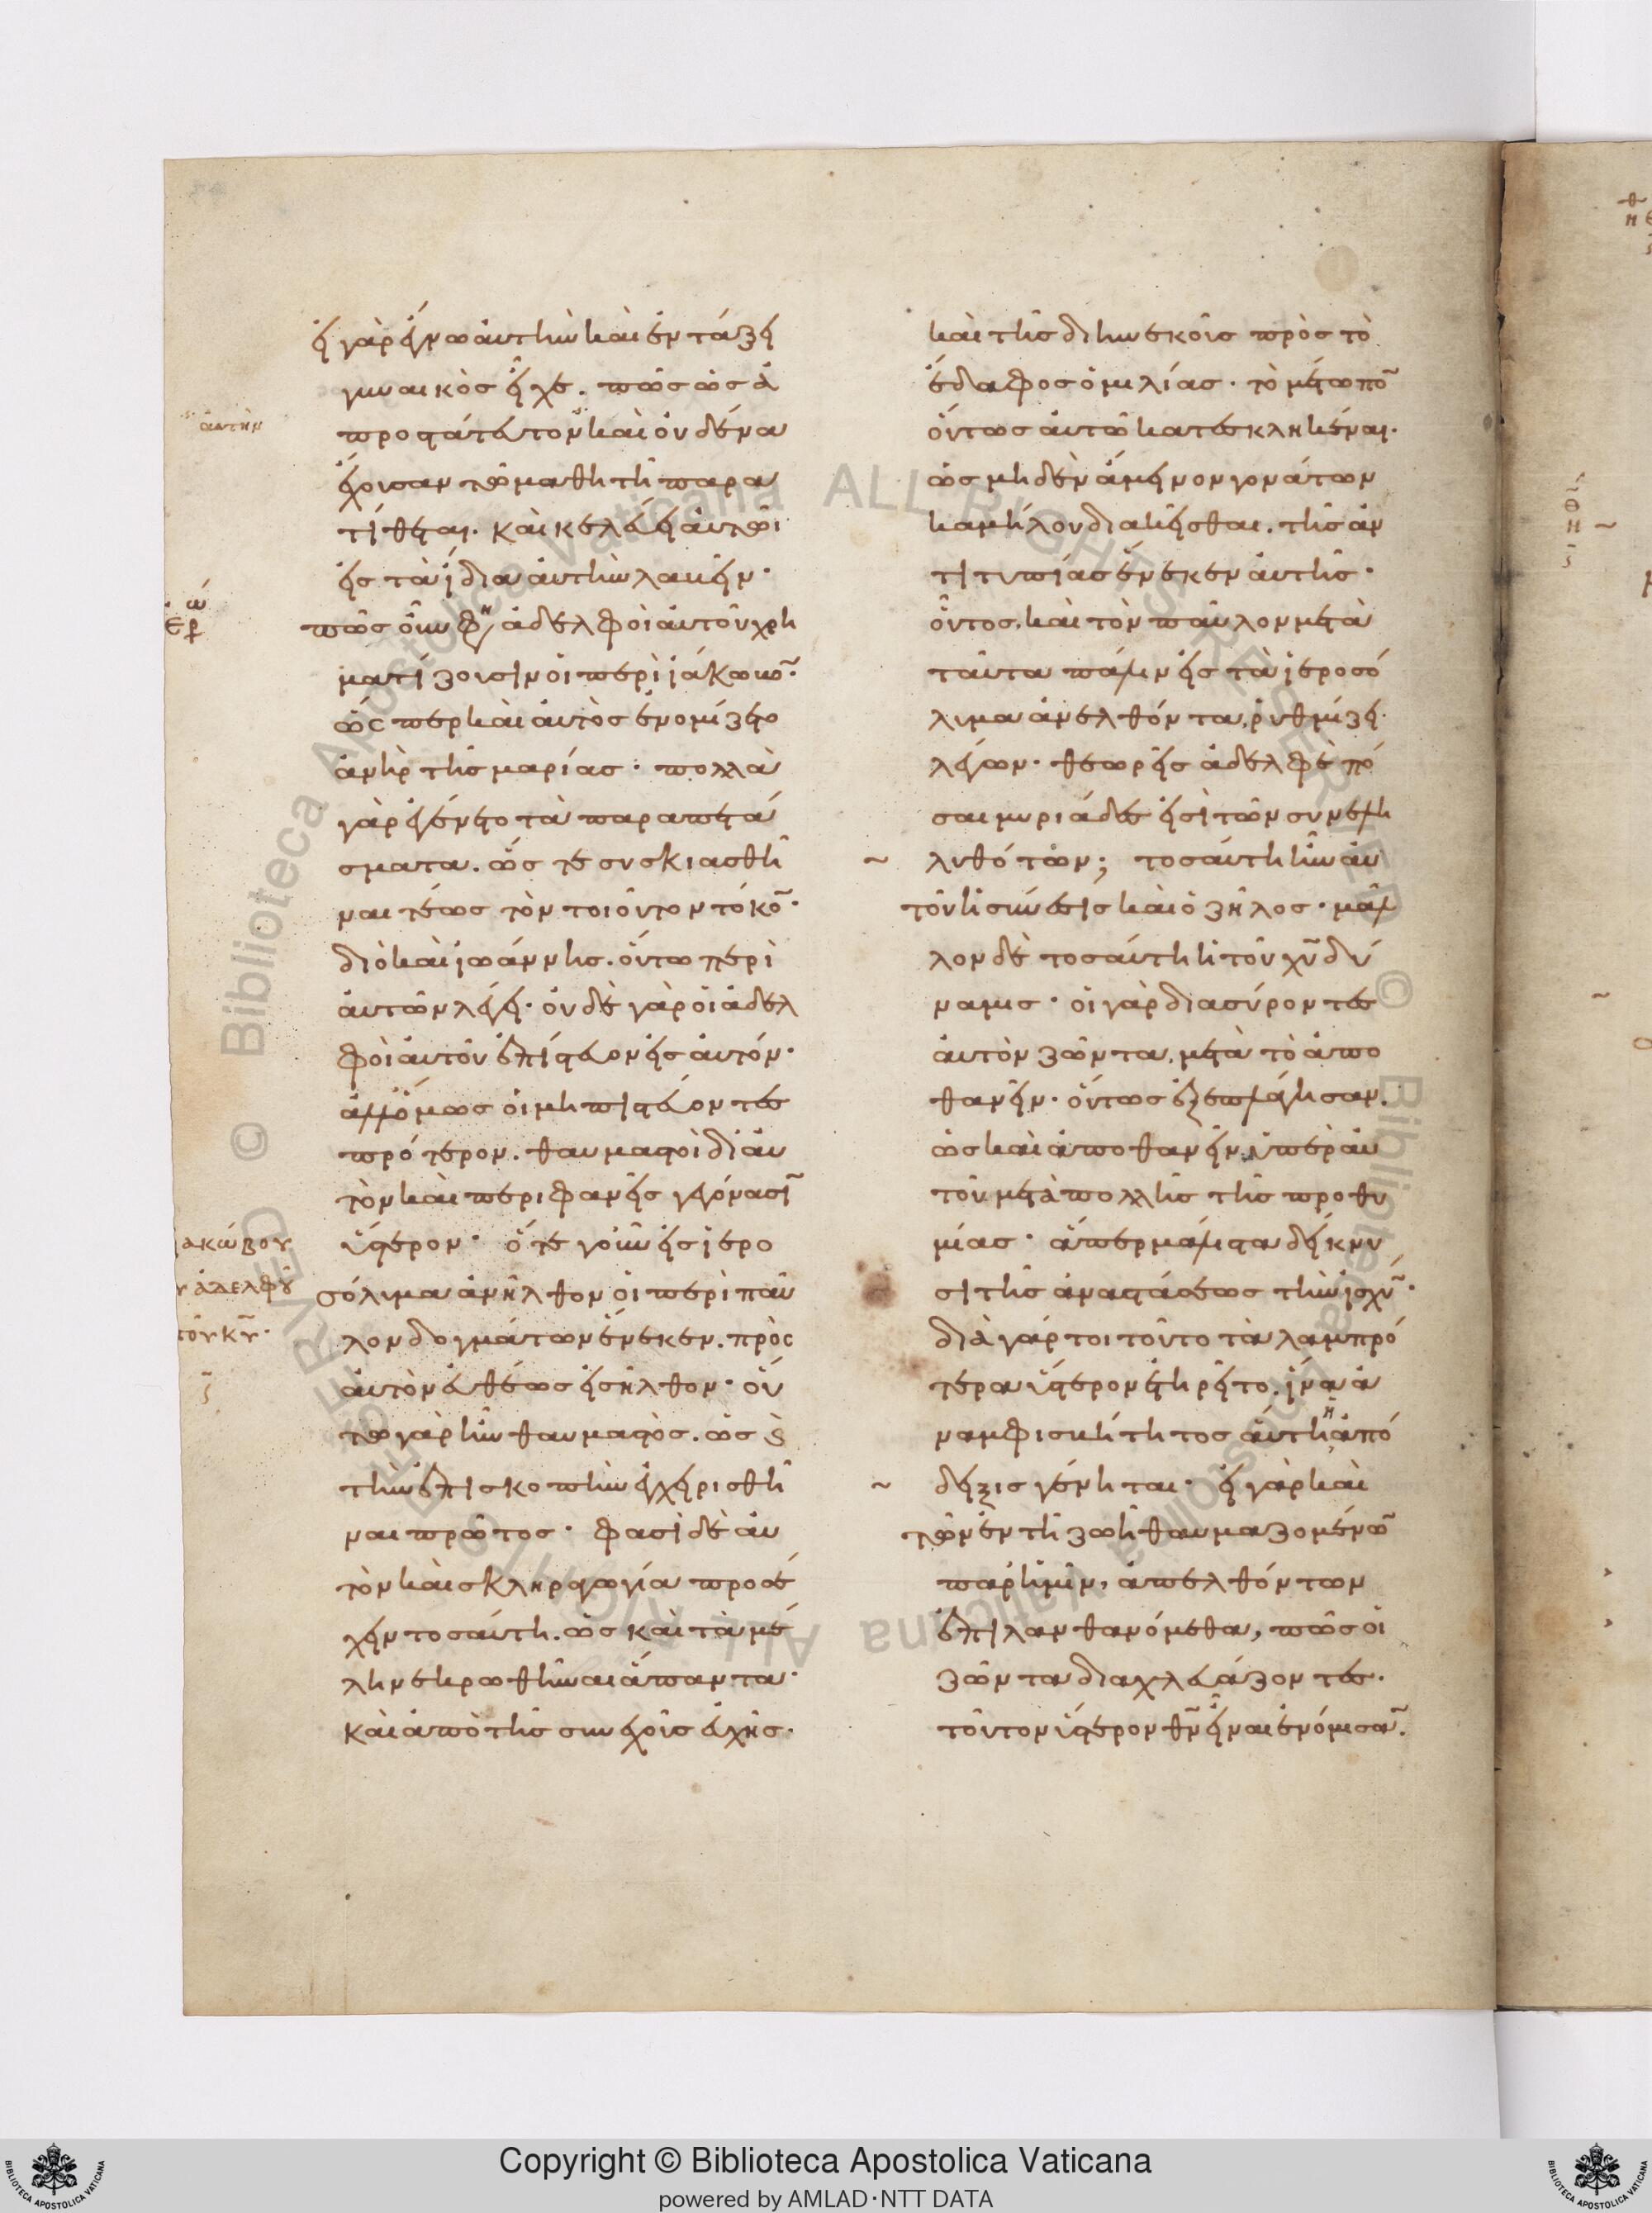 εἰ γὰρ ἔγνω αὐτὴν καὶ ἐν τάξει
γυναικὸς εἶχε. πῶς ὡς ἀ
αὐτὴν
προστάτευτον καὶ οὐδένα
ἔχουσαν τῶ μαθητῆ παρα
τίθεται. καὶ κελεύει αὐτῶι
εἰς τὰ ἴδια αὐτὴν λαβεῖν·
ἐρω
πῶς οὖν φη ἀδελφοὶ αὐτοῦ χρη
ματίζουσιν οἱ περὶ ἰάκωβο̅·
ὥσπερ καὶ αὐτὸς ἐνομίζετο
ἀνὴρ τῆς μαρίας· πολλὰ
γὰρ ἐγένετο τὰ παραπετά
σματα. ὥς τε συσκιασθῆ
ναι τέως τὸν τοιοῦτον τόκο̅·
διὸ καὶ ἰωάννης. οὕτω περὶ
αὐτῶν λέγει· οὐδὲ γὰρ οἱ ἀδελ
φοὶ αὐτοῦ ἐπίστευον εἰς αὐτόν·
ἀλλ' ὅμως οἱ μὴ πιστεύοντες
πρότερον. θαυμαστοὶ δι' αὐ
τὸν καὶ περιφανεῖς γεγόνασι̅
ακώβου
ὕστερον· ὅτε γοῦν εἰς ἱερο
υ ἀδελφοῦ
σόλυμα ἀνῆλθον οἱ περὶ παῦ
τοῦ κυ̅·
λον δογμάτων ἕνεκεν. πρὸς
αὐτὸν εὐθέως εἰσῆλθον· οὕ
τω γὰρ ἦν θαυμαστὸς. ὡς ϗ
τὴν ἐπισκοπὴν ἐγχειρισθῆ
ναι πρῶτος· φασὶ δὲ αὐ
τὸν καὶ σκληραγωγία προσέ
χειν τοσαύτη. ὡς καὶ τὰ μέ
λη νεκρωθῆναι ἅπαντα·
καὶ ἀπὸ τῆς συνεχοῦς εὐχῆς·
καὶ τῆς διηνεκοῦς πρὸς τὸ
ἔδαφος ὁμιλίας· τὸ μέτωπο̅
οὕτως αὐτῶ κατεσκληκέναι.
ὡς μηδὲν ἄμεινον γονάτων
καμήλου διακεῖσθαι. τῆς ἀν
τιτυπίας ἕνεκεν αὐτῆς·
οὗτος, καὶ τὸν παῦλον μετὰ
ταῦτα πάλιν εἰς τὰ ἱεροσό
λυμα ἀνελθόντα, ῥυθμίζει
λέγων· θεωρεῖς ἀδελφὲ πό
σαι μυριάδες εἰσὶ τῶν συνελη
~ λυθότων; τοσαύτη ἦν αὐ
τοῦ ἡ σύνεσις καὶ ὁ ζῆλος· μᾶλ
λον δὲ τοσαύτη ἡ τοῦ χυ̅ δύ
ναμις· οἱ γὰρ διασύροντες
αὐτὸν ζῶντα, μετὰ τὸ ἀπο
θανεῖν· οὕτως ἐξεπλάγησαν.
ὡς καὶ ἀποθανεῖν ὑπὲρ αὐ
τοῦ μετὰ πολλῆς τῆς προθυ
μίας· ἅπερ μάλιστα δείκνυ
σι τῆς ἀναστάσεως τὴν ἰσχυ̅·
διὰ γάρ τοι τοῦτο τὰ λαμπρό
τερα ὕστερον ἐτηρεῖτο. ἵνα ἀ
ναμφισβήτητος αὕτη ἡ ἀπό
~ δειξις γένηται· εἰ γὰρ καὶ
τῶν ἐν τῆ ζωῆ θαυμαζομένω̅
παρ' ἡμῖν, ἀπελθόντων
ἐπιλανθανόμεθα, πῶς οἱ
ζῶντα διαχλευάζοντες.
τοῦτον ὕστερον θν̅ εἶναι ἐνόμισα̅.
Copyright © Biblioteca Apostolica Vaticana
powered by AMLAD·NTT DATA